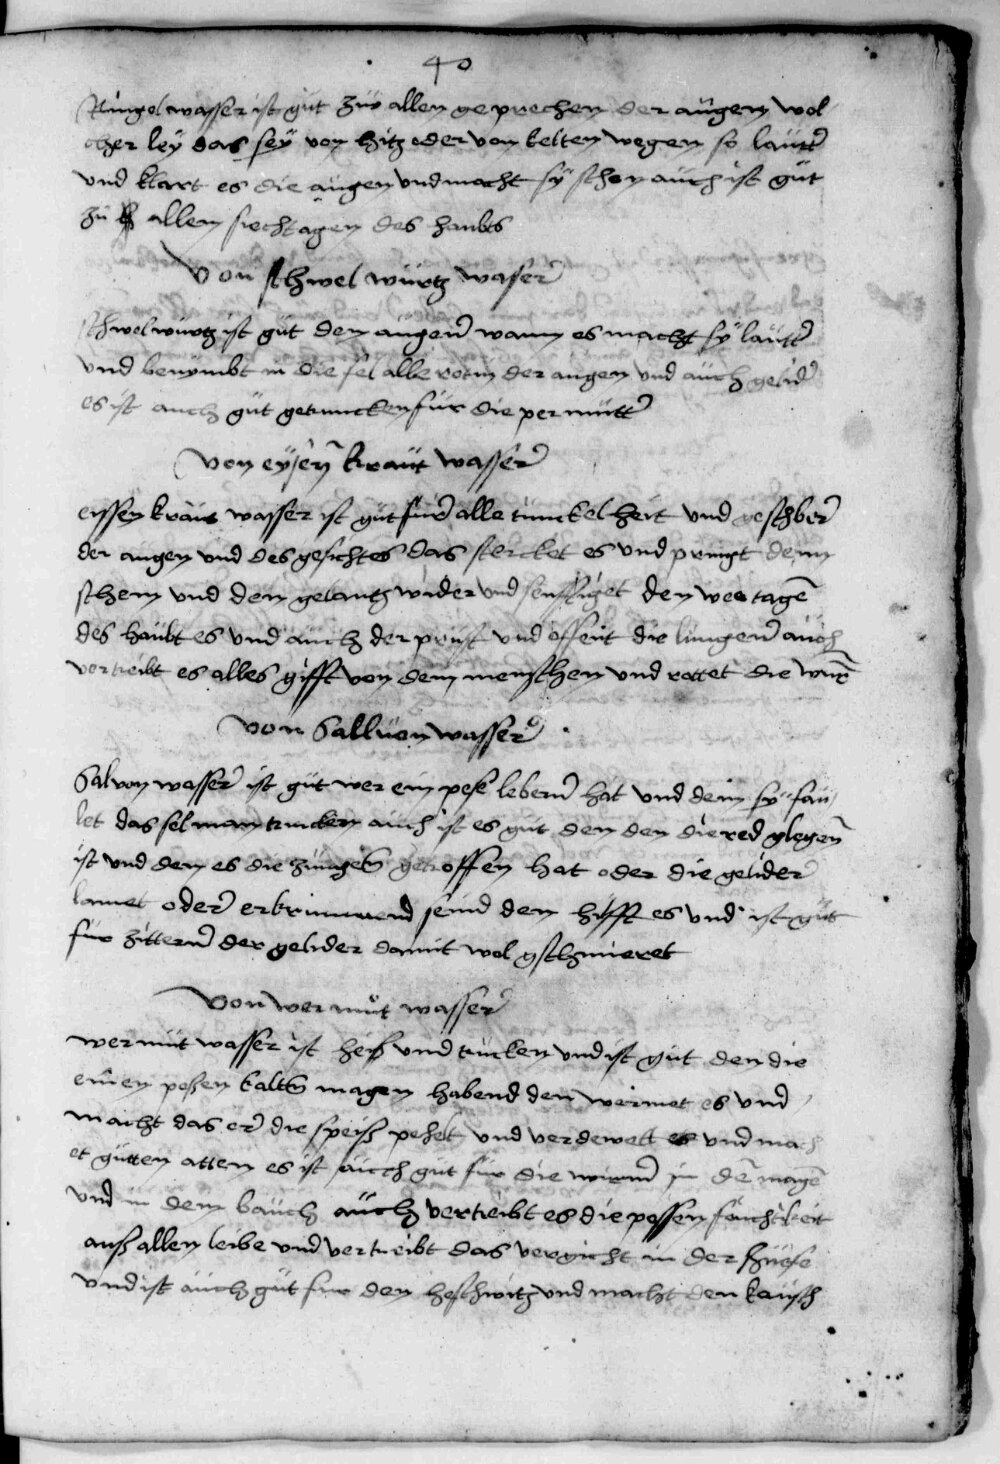 40
Ringel wasser ist güt züo allen geprechen der augen wol
cher ley das sey von hitz oder von kelten wegen so lautt
und klart es die augen und macht sy schon auch ist güt
zü allem siechtagen des haubts
Von schwel würtz waser
schwelwürtz ist güt den augen wann es macht sy lautt
und benymbt in die fel alle rotin der augen und auch gelid
es ist auch güt getruncken für die permutt
Von eysen kraut wasser
eissenkraut wasser ist güt für alle tunckelheit und geschber
der augen und des gesichtes das stercket es und pringt dein
schein und den gelantz wider und senfftiget den weetagen
des haubt es und auch der prust und offent die lungen auch
vertreibt es alles gifft von dem menschen und rottet die wurm
Von Salluon wasser
Salvon wasser ist güt wer ein pese lebern hat und dem sy fau
let das sel man trincken auch ist es güt dem den die red glegen
ist und dem es die zungen getroffen hat oder die gelider
lamet oder erkrummend seind dem hifft es und ist güt
für zittern der gelider damit wol gschmieret
Von wermüt wasser
wermüt wasser ist heiß und trucken und ist güt den die
einen pesen kalten magen habend den wermet es und
macht das er die speiß pehelt und verdewett es und mach
et gutten attem es ist auch güt für die würm in dem magen
und in dem bauch auch vertreibt es die possen feuchtikeit
auß allen leibe und vertreibt das vergicht in der huefe
und ist auch güt für den heschwitz und macht den keusch